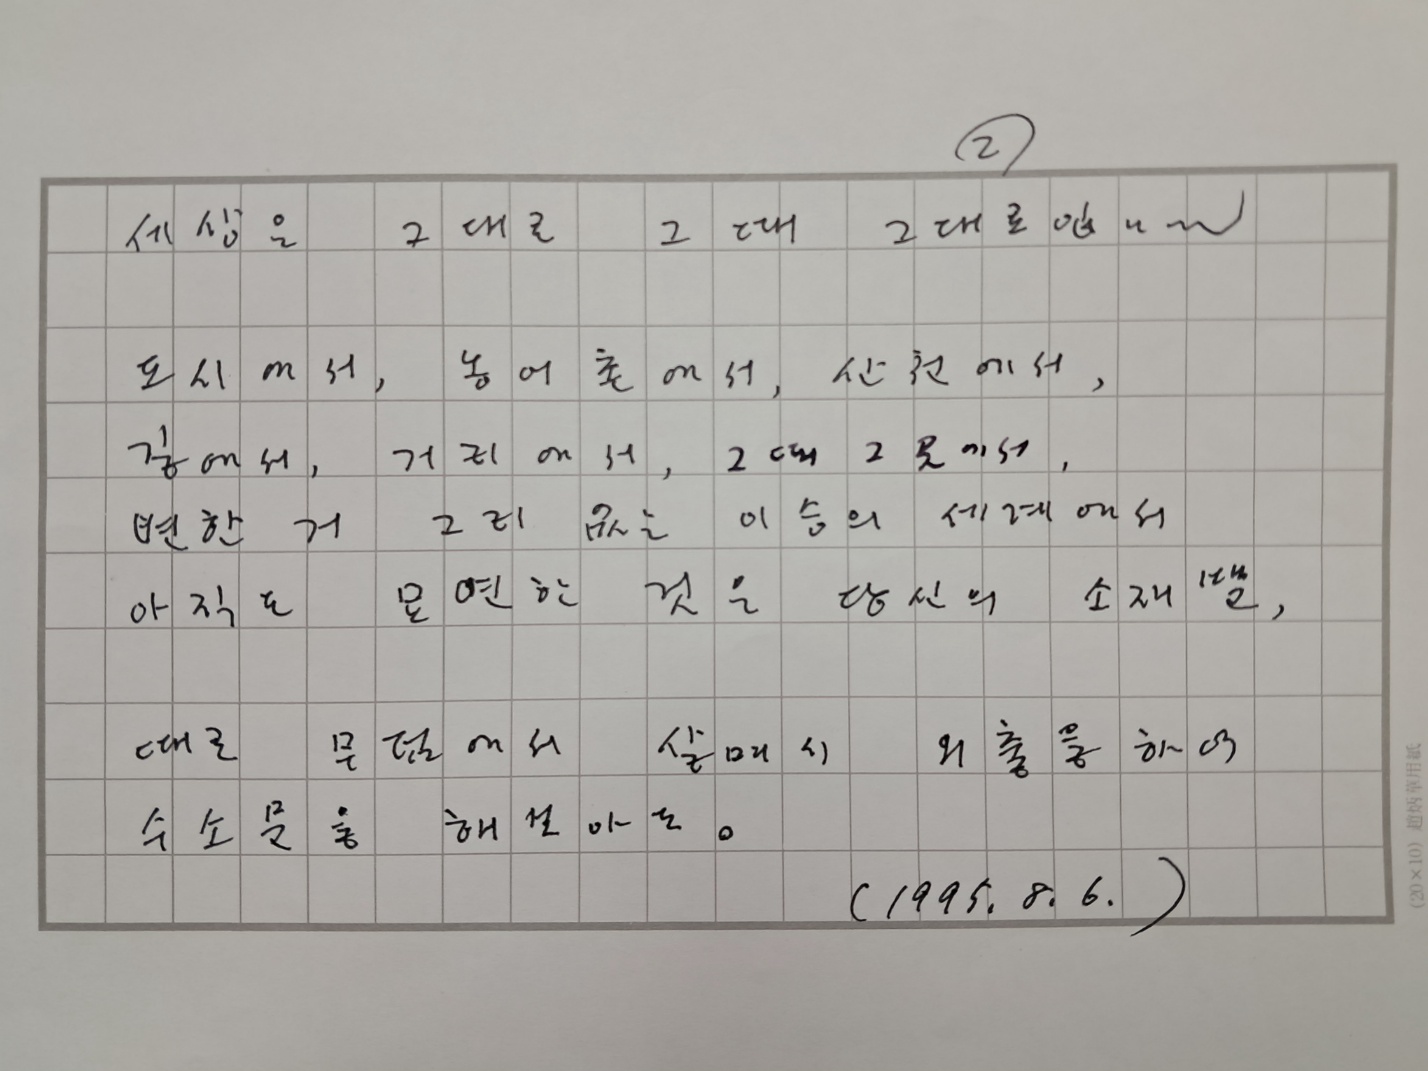 ②
세상은 그대로 그 때 그대로입니다
도시에서, 농어촌에서, 산천에서,
길에서, 거리에서, 그때 그곳에서,
변한 거 그리 없는 이승의 세계에서
아직도 묘연한 것은 당신의 소재뿐,
때로 무덤에서 살며시 외출을 하여
수소문을 해보아도。
(1995. 8. 6. )
(20×10) 趙炳華用紙